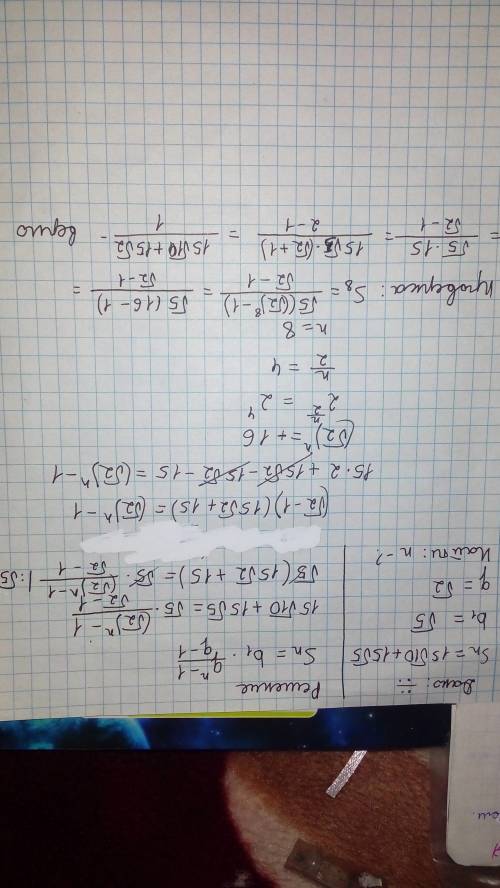 Дано: ∺
Sn = 15√10 + 15√5
b₁ = √5
q = √2
Найти: n - ?
Решение
Sn = b₁ · (qⁿ - 1)/(q - 1)
15√10 + 15√5 = √5 · ((√2)ⁿ - 1)/(√2 - 1)
√5(15√2 + 15) = √5 · ((√2)ⁿ - 1)/(√2 - 1) | : √5
(√2 - 1)(15√2 + 15) = (√2)ⁿ - 1
15 · 2 + 15√2 - 15√2 - 15 = (√2)ⁿ - 1
(√2)ⁿ = + 16
2^(n/2) = 2⁴
n/2 = 4
n = 8
Проверка: S₈ = √5((√2)⁸ - 1)/(√2 - 1) = √5(16 - 1)/(√2 - 1) =
= √5 · 15/(√2 - 1) = 15√5 · (√2 + 1)/(2 - 1) = (15√10 + 15√2)/1 - верно